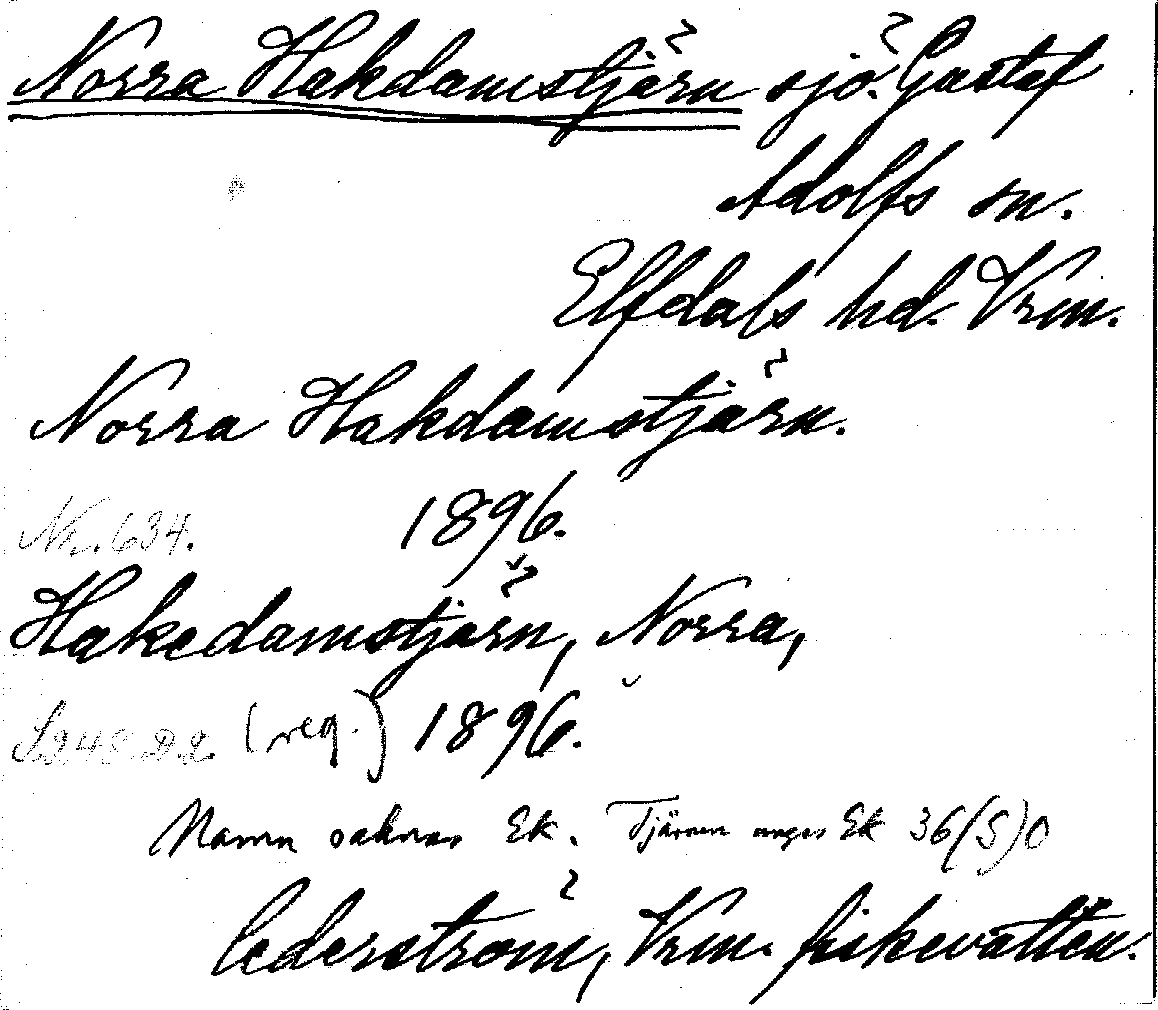 Norra Hakdamstjärn sjö. Gustaf
Adolfs sn.
Elfdals hd. Vrm.
Norra Hakdamstjärn.
Nr. 634. 1896.
Hakedamstjärn, Norra,
S. 248. D. 2. (reg.) 1896.
Namn saknas Ek. Tjärnen anges Ek 36(S)O
Cederström, Vrm. fiskevatten.